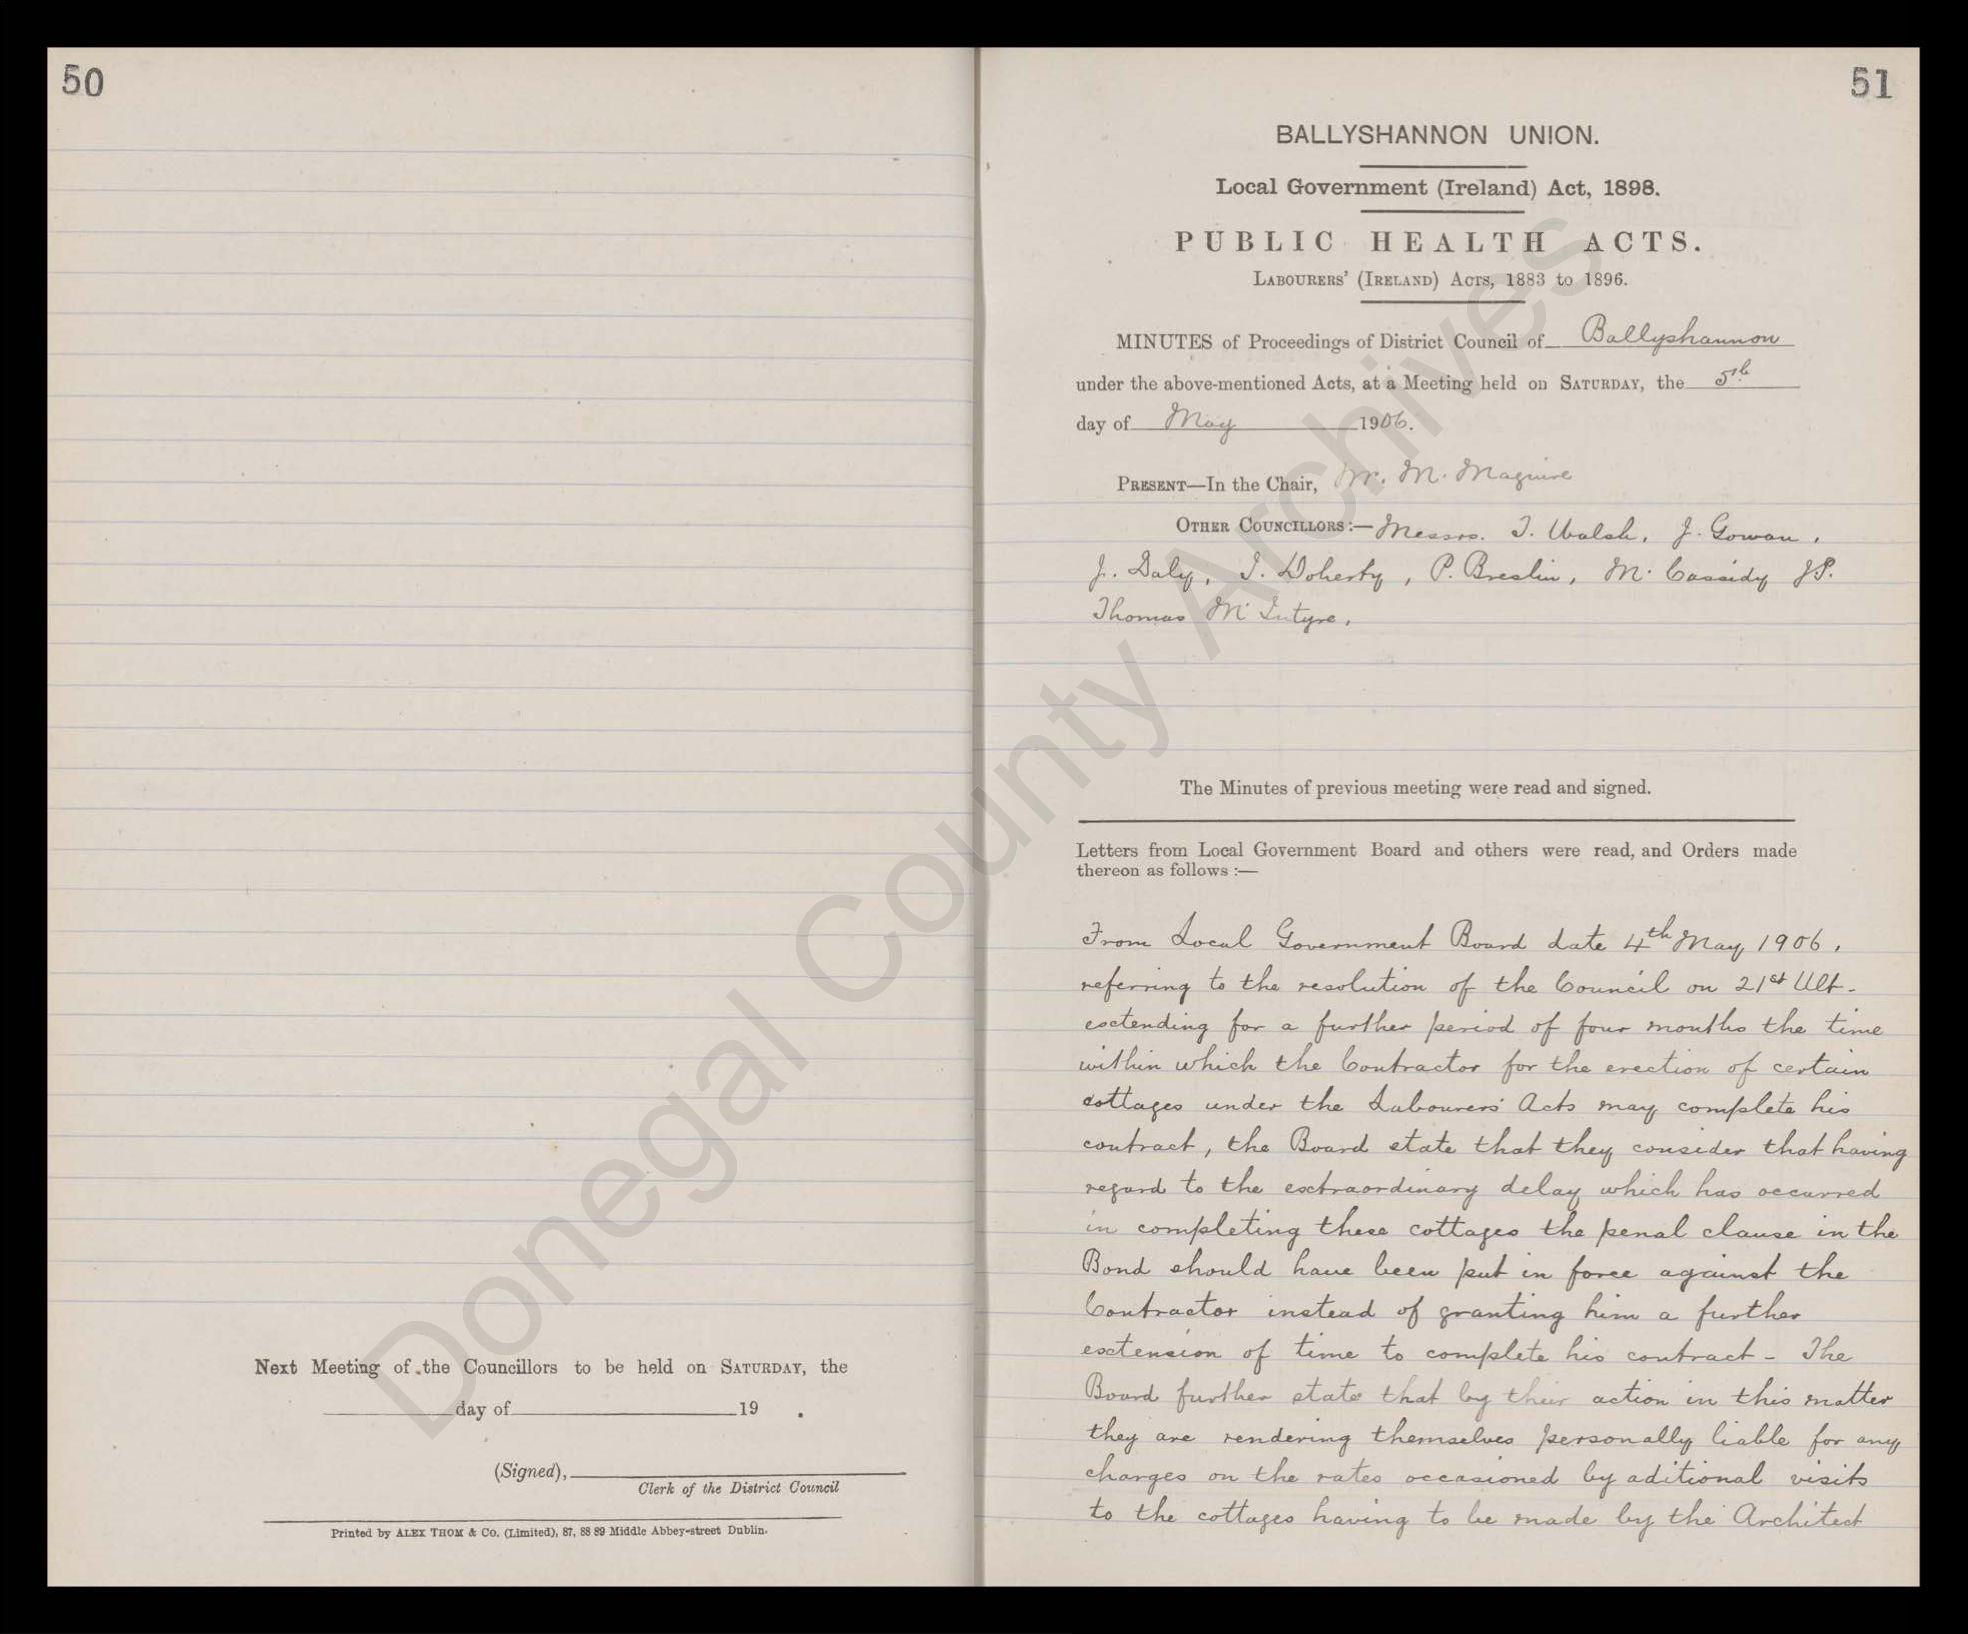 50
Next Meeting of the Councillors to be held on SATURDAY, the
day of 19 .
(Signed),
Clerk of the District Council
Printed by ALEX THOM & CO. (Limited), 87, 88 89 Middle Abbey-street Dublin.
51
BALLYSHANNON UNION.
Local Government (Ireland) Act, 1898.
PUBLIC HEALTH ACTS.
LABOURERS' (IRELAND) ACTS, 1883 to 1896.
MINUTES of Proceedings of District Council of Ballyshannon
under the above-mentioned Acts, at a Meeting held on SATURDAY, the 5th
day of May 1906.
PRESENT—In the Chair, Mr. M. Maguire
OTHER COUNCILLORS:— Messrs. T. Walsh, J. Gowan,
J. Daly, T. Doherty, P. Breslin, M. Cassidy J.P.
Thomas McIntyre.
The Minutes of previous meeting were read and signed.
Letters from Local Government Board and others were read, and Orders made
thereon as follows :—
From Local Government Board date 4th May, 1906,
referring to the resolution of the Council on 21st Ult-
extending for a further period of four months the time
within which the Contractor for the erection of certain
cottages under the Labourers' Acts may complete his
contract, the Board state that they consider that having
regard to the extraordinary delay which has occurred
in completing these cottages the penal clause in the
Bond should have been put in force against the
Contractor instead of granting him a further
extension of time to complete his contract - The
Board further state that by their action in this matter
they are rendering themselves personally liable for any
charges on the rates occasioned by aditional visits
to the cottages having to be made by the Architect
Donegal County Archives